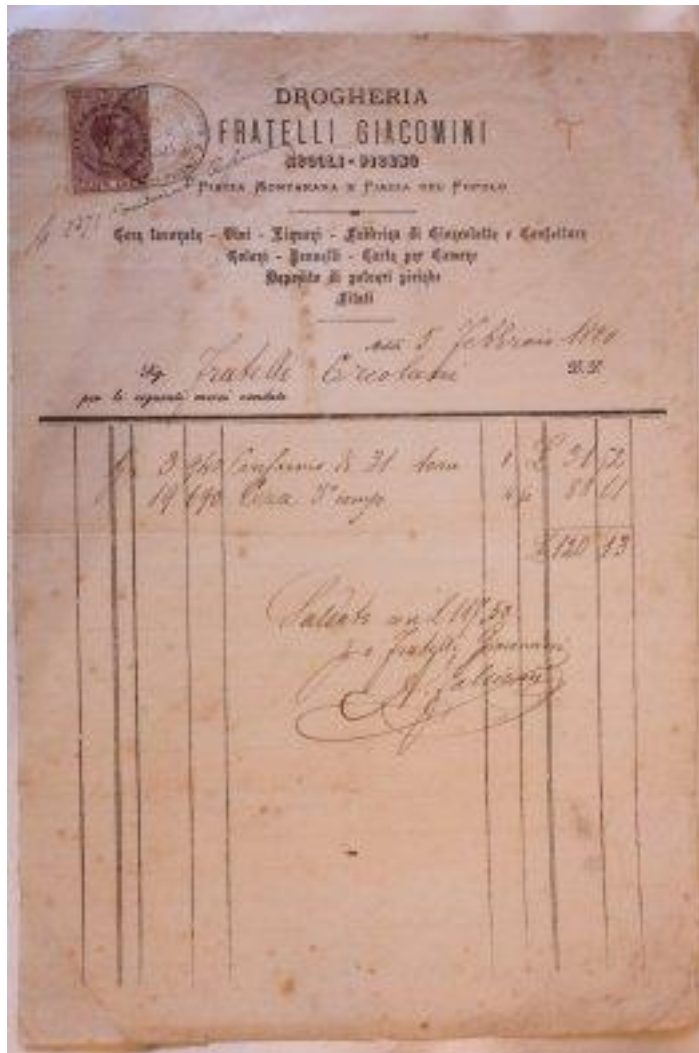 DROGHERIA
FRATELLI GIACOMINI
ASCOLI-PICENO
PIAZZA MONTANARA E PIAZZA DEL POPOLO
Cera lavorata - Vini - Liquori - Fabbrica di Cioccolatte e Confetture
Colori - Pennelli - Carte per Camere
Deposito di polveri piriche
Filati
Addì 5 Febbraio
Sig. Fratelli
per le seguenti merci vendute
3 940 di 31 1 £ 31 52
19 690 Cera 88 61
£ 120 13
Saldato con £ 117.50
Fratelli Giacomini